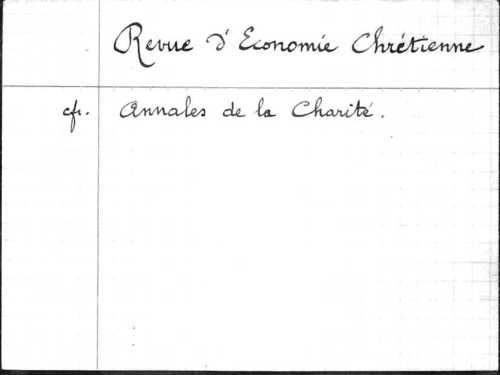 Revue d'Economie Chrétienne
cfr. Annales de la Charité.